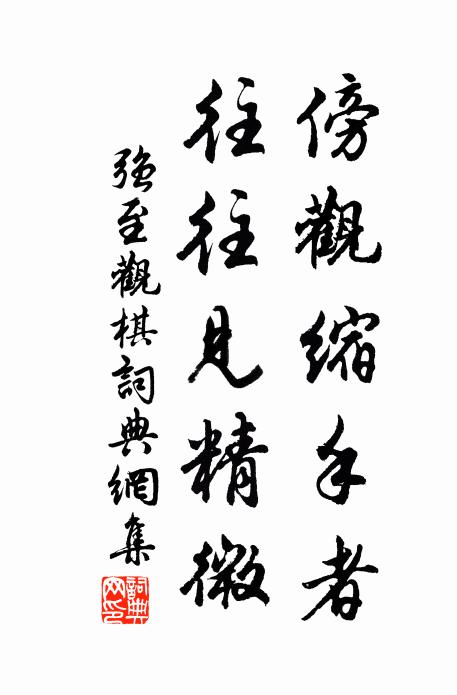 傍觀縮手者
往往見精微
強至觀棋詞典網集
詞典網印